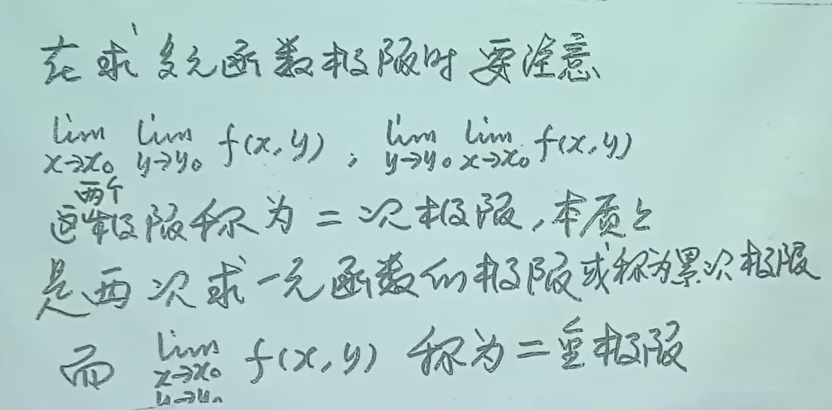 在求多元函数极限时要注意
lim x→x₀ lim y→y₀ f(x,y), lim y→y₀ lim x→x₀ f(x,y)
这两个极限称为二次极限,本质上
是两次求一元函数的极限或称为累次极限
而 lim x→x₀ y→y₀ f(x,y) 称为二重极限